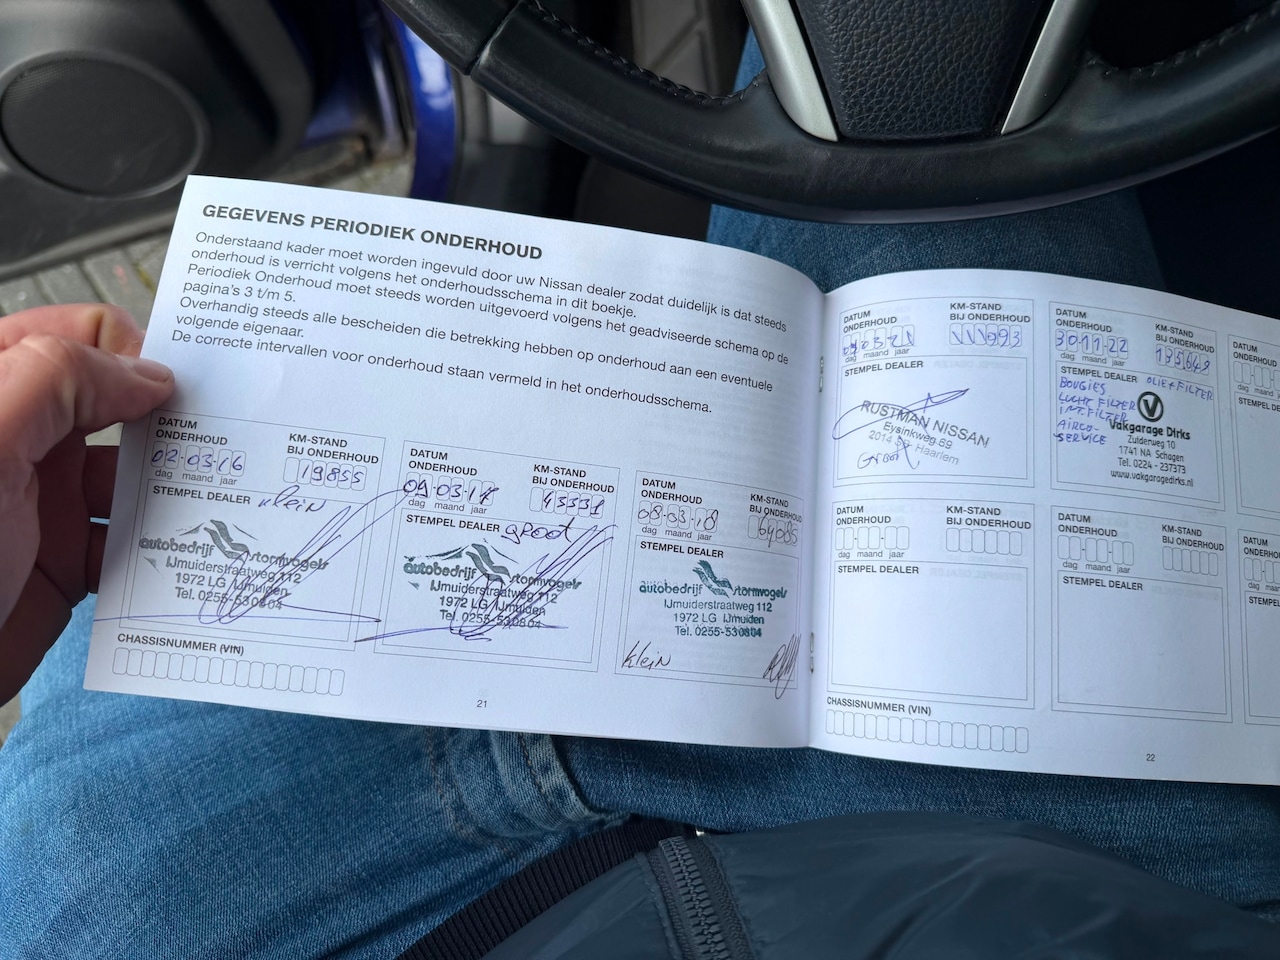 GEGEVENS PERIODIEK ONDERHOUD
Onderstaand kader moet worden ingevuld door uw Nissan dealer zodat duidelijk is dat steeds
onderhoud is verricht volgens het onderhoudsschema in dit boekje.
Periodiek Onderhoud moet steeds worden uitgevoerd volgens het geadviseerde schema op de
pagina's 3 t/m 5.
Overhandig steeds alle bescheiden die betrekking hebben op onderhoud aan een eventuele
volgende eigenaar.
De correcte intervallen voor onderhoud staan vermeld in het onderhoudsschema.
DATUM
ONDERHOUD
KM-STAND
BIJ ONDERHOUD
02-03-16
19855
dag maand jaar
STEMPEL DEALER
klein
autobedrijf stormvogels
IJmuiderstraatweg 112
1972 LG IJmuiden
Tel. 0255-530804
DATUM
ONDERHOUD
KM-STAND
BIJ ONDERHOUD
09-03-17
43331
dag maand jaar
STEMPEL DEALER
groot
autobedrijf stormvogels
IJmuiderstraatweg 112
1972 LG IJmuiden
Tel. 0255-530804
DATUM
ONDERHOUD
KM-STAND
BIJ ONDERHOUD
08-03-18
64085
dag maand jaar
STEMPEL DEALER
autobedrijf stormvogels
IJmuiderstraatweg 112
1972 LG IJmuiden
Tel. 0255-530804
klein
CHASSISNUMMER (VIN)
21
DATUM
ONDERHOUD
KM-STAND
BIJ ONDERHOUD
dag maand jaar
STEMPEL DEALER
RUSTMAN NISSAN
Eysinkweg 69
Haarlem
Groot
DATUM
ONDERHOUD
KM-STAND
BIJ ONDERHOUD
30-11-22
135649
dag maand jaar
STEMPEL DEALER
OLIE+FILTER
BOUGIES
LUCHT FILTER
INT. FILTER
AIRCO-
SERVICE
Vakgarage Dirks
Zuiderweg 10
1741 NA Schagen
Tel. 0224 - 237373
www.vakgaragedirks.nl
DATUM
ONDERHOUD
dag maand
STEMPEL
DATUM
ONDERHOUD
KM-STAND
BIJ ONDERHOUD
dag maand jaar
STEMPEL DEALER
DATUM
ONDERHOUD
KM-STAND
BIJ ONDERHOUD
dag maand jaar
STEMPEL DEALER
DATUM
dag
CHASSISNUMMER (VIN)
22